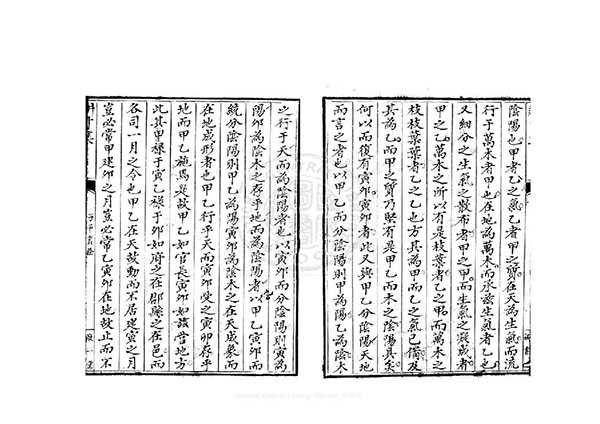 陰陽也甲者乙之氣乙者甲之質在天為生氣而流
行于萬木者甲也在地為萬木而承茲生氣者乙也
又細分之生氣之散布者甲之甲而生氣之凝成者
甲之乙萬木之所以有是枝葉者乙之甲而萬木之
枝枝葉葉者乙之乙也方其為甲而乙之氣已備及
其為乙而甲之質乃堅有是甲乙而木之陰陽具矣
何以而復有寅卯寅卯者此又與甲乙分陰陽天地
而言之者也以甲乙而分陰陽則甲為陽乙為陰木
之行于天而為陰陽者也以寅卯而分陰陽則寅為
陽卯為陰木之存乎地而為陰陽者以甲乙寅卯而
統分陰陽則甲乙為陽寅卯為陰木之在天成象而
在地成形者也甲乙行乎天而寅卯受之寅卯存乎
地而甲乙施焉是故甲乙如官長寅卯如該管地方
此其甲祿于寅乙祿于卯如府之在郡縣之在邑而
各司一月之令也甲乙在天故動而不居建寅之月
豈必當甲建卯之月豈必常乙寅卯在地故止而不